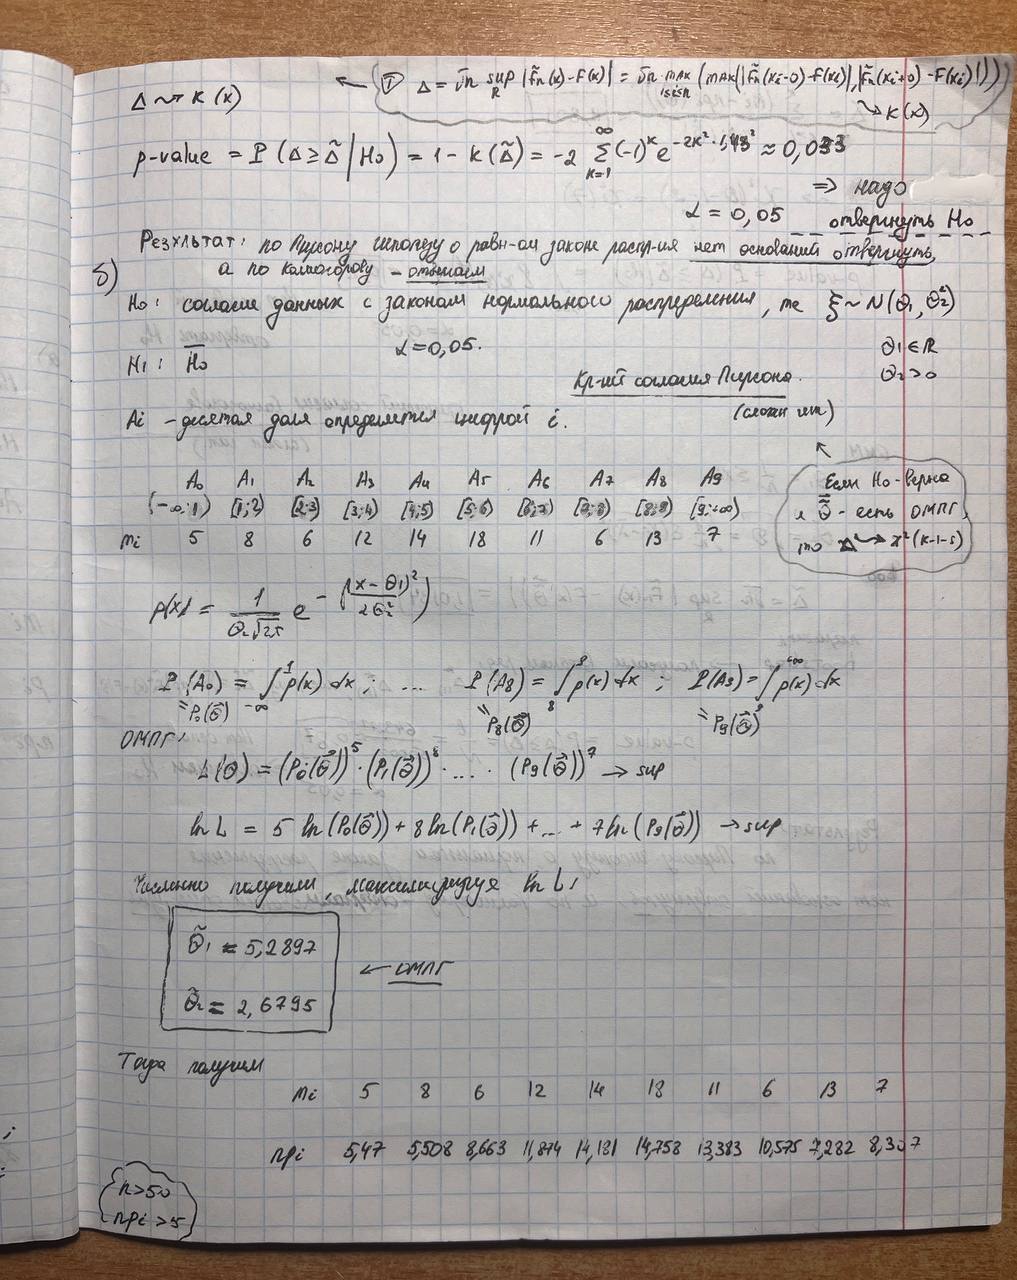 Δ ⇝ K(x) ← (T) Δ = √n sup_R |F̃n(x) - F(x)| = √n max_{1≤i≤n} (max(|F̃n(xi-0) - F(xi)|, |F̃n(xi+0) - F(xi)|))
⇝ K(x)
p-value = P(Δ ≥ Δ̃ | H₀) = 1 - K(Δ̃) = -2 ∑_{k=1}^{∞} (-1)^k e^{-2k²·1,43²} ≈ 0,033
⇒ надо
α = 0,05 отвергнуть H₀
Результат: по Пирсону гипотезу о равн-ом законе распр-ия нет оснований отвергнуть,
а по Колмогорову – отвергаем
б)
H₀: согласие данных с законом нормального распределения, те ξ ~ N(θ₁, θ₂²)
α = 0,05. θ₁ ∈ R
H₁: H̄₀ θ₂ > 0
Кр-ий согласия Пирсона.
Ai – десятая доля определяется цифрой i. (сложн гип)
A₀ A₁ A₂ A₃ A₄ A₅ A₆ A₇ A₈ A₉
(-∞;1) [1;2) [2;3) [3;4) [4;5) [5;6) [6;7) [7;8) [8;9) [9;+∞)
mi 5 8 6 12 14 18 11 6 13 7
Если H₀ – верна
и θ̃ – есть ОМПГ,
то Δ ⇝ χ²(k-1-s)
p(x) = 1/(θ₂√2π) e^{-((x-θ₁)²/2θ₂²)}
P(A₀) = ∫_{-∞}^{1} p(x)dx; .... P(A₈) = ∫_8^9 p(x)dx; P(A₉) = ∫_9^{+∞} p(x)dx
= P₀(θ⃗) = P₈(θ⃗) = P₉(θ⃗)
ОМПГ:
L(θ) = (P₀(θ⃗))⁵ · (P₁(θ⃗))⁸ · .... · (P₉(θ⃗))⁷ → sup
ln L = 5 ln(P₀(θ⃗)) + 8 ln(P₁(θ⃗)) + ... + 7 ln(P₉(θ⃗)) → sup
Численно получили, максимизируя ln L:
θ̃₁ = 5,2897
← ОМПГ
θ̃₂ = 2,6795
Тогда получим
mi 5 8 6 12 14 18 11 6 13 7
npi 5,47 5,508 8,663 11,874 14,181 14,758 13,383 10,575 7,282 8,307
n > 50
npi > 5